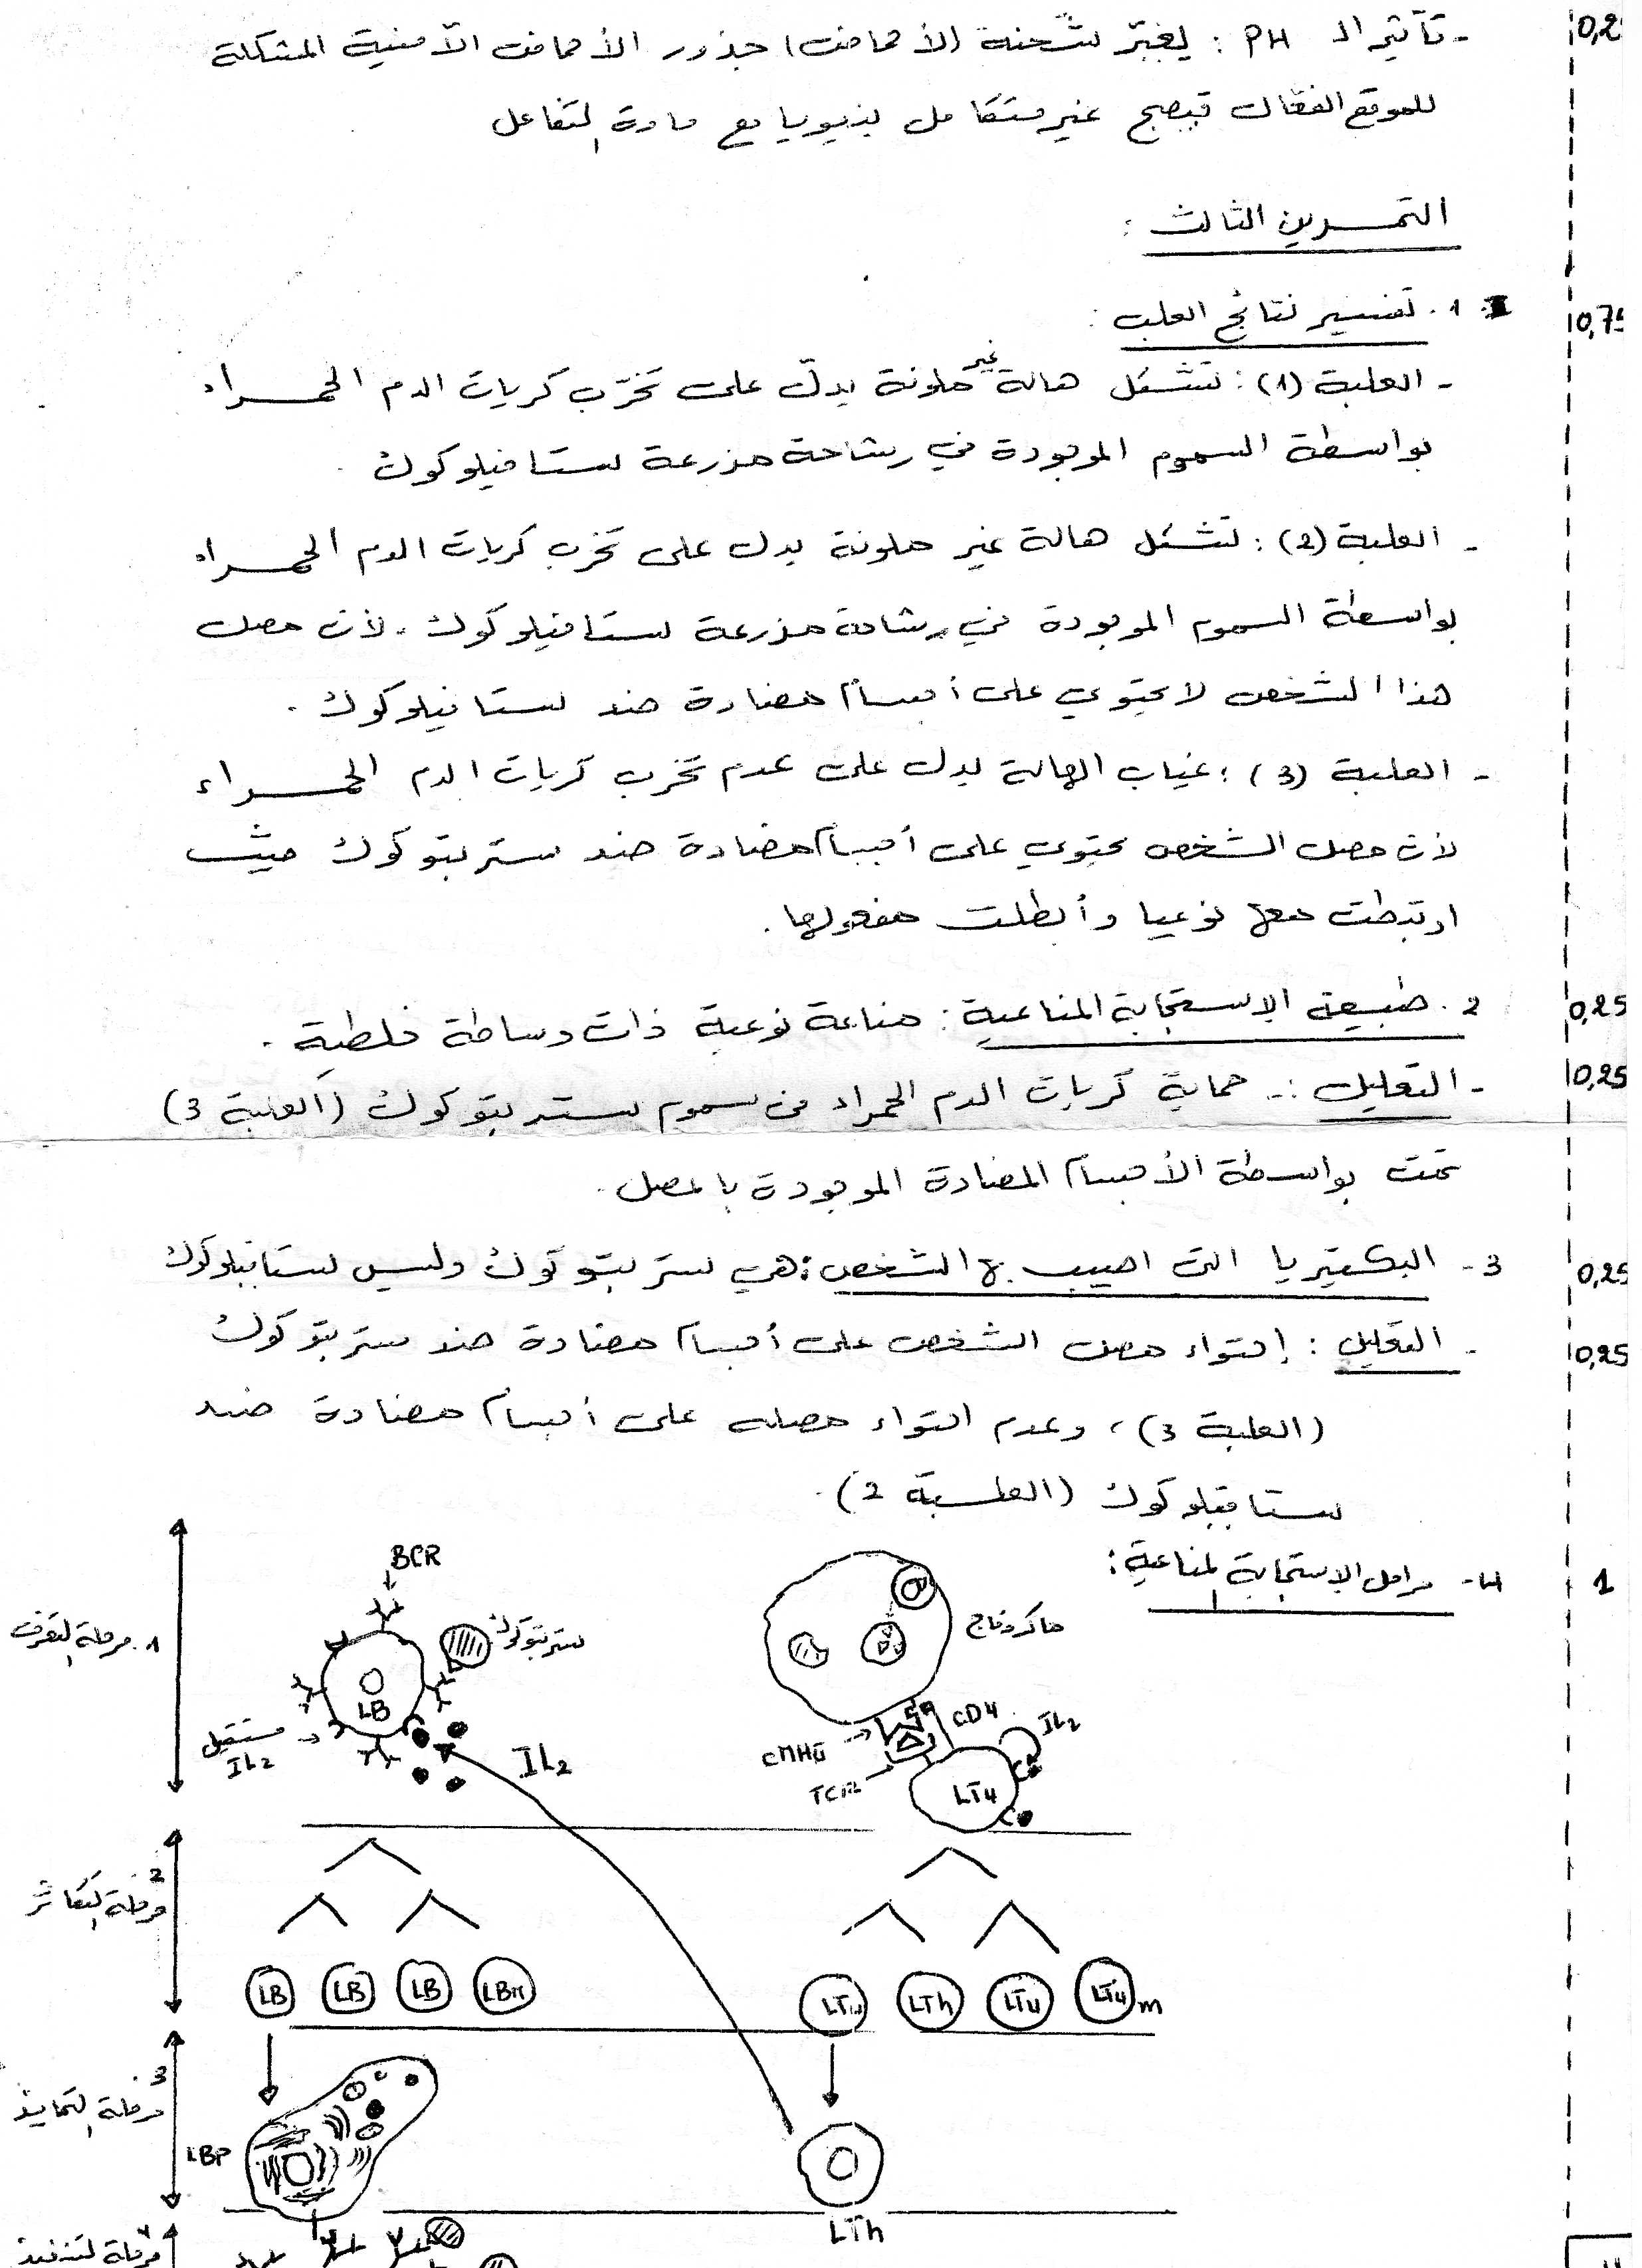 - تأثير الـ PH : يغيّر شحنة (الأحماض) جذور الأحماض الأمنية المشكلة
للموقع الفعّال فيصبح غير متكامل بنيويا مع مادة التفاعل
0,2
التمرين الثالث :
1. تفسير نتائج العلب :
0,75
- العلبة (1) : تشكل هالة غير ملونة يدلّ على تخرّب كريات الدم الحمراء
بواسطة السموم الموجودة في رشاحة مزرعة ستافيلوكوك .
- العلبة (2) : تشكل هالة غير ملونة يدل على تخرب كريات الدم الحمراء
بواسطة السموم الموجودة في رشاحة مزرعة ستافيلوكوك . لأن مصل
هذا الشخص لا يحتوي على أجسام مضادة ضد ستافيلوكوك .
- العلبة (3) : غياب الهالة يدل على عدم تخرب كريات الدم الحمراء
لأن مصل الشخص يحتوي على أجسام مضادة ضد ستربتوكوك حيث
ارتبطت معها نوعيا وأبطلت مفعولها .
2. طبيعة الإستجابة المناعية : مناعة نوعية ذات وساطة خلطية .
0,25
- التعليل : - حماية كريات الدم الحمراء من سموم ستربتوكوك (العلبة 3)
0,25
تمت بواسطة الأجسام المضادة الموجودة بالمصل .
3- البكتيريا التي اصيب بها الشخص : هي ستربتوكوك وليس ستافيلوكوك
0,25
- التعليل : إحتواء مصل الشخص على أجسام مضادة ضد ستربتوكوك
0,25
(العلبة 3) ، وعدم احتواء مصله على أجسام مضادة ضد
ستافيلوكوك (العلبة 2) .
4- مراحل الإستجابة المناعية :
1
BCR
ستربتوكوك
LB
مستقبل
IL2
IL2
ماكروفاج
CMHII
TCR
CD4
IL2
LT4
1. مرحلة التعرف
2.
مرحلة التكاثر
LB LB LB LBm
LT4 LTh LT4 LT4m
3.
مرحلة التمايز
LBP
LTh
4
مرحلة التنفيذ